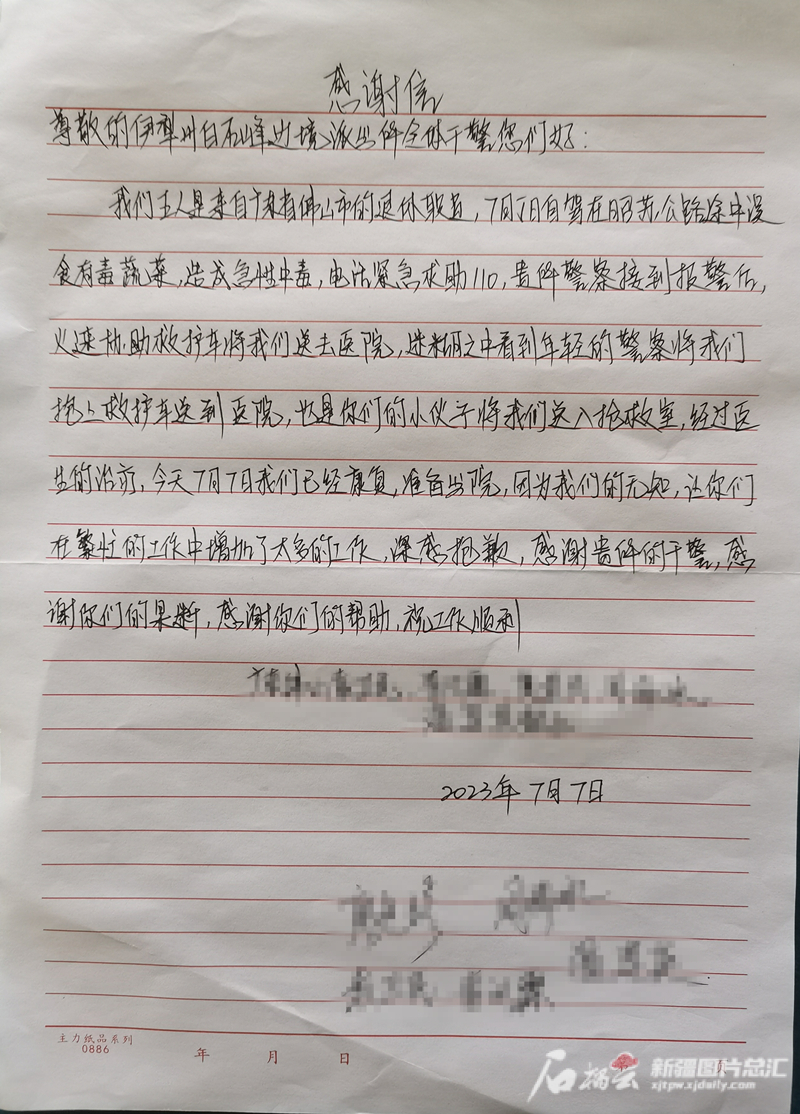 感谢信
尊敬的伊犁州白石峰边境派出所全体干警您们好：
我们五人是来自广东省佛山市的退休职员，7月5日自驾在昭苏公路途中误
食有毒蔬菜，造成急性中毒，电话紧急求助110，贵所警察接到报警后，
火速协助救护车将我们送去医院，迷糊之中看到年轻的警察将我们
抱上救护车送到医院，也是你们的小伙子将我们送入抢救室，经过医
生的治疗，今天7月7日我们已经康复，准备出院，因为我们的无知，让你们
在繁忙的工作中增加了太多的工作，深感抱歉，感谢贵所的干警，感
谢你们的果断，感谢你们的帮助，祝工作顺利
2023年7月7日
主力纸品系列
0886
年 月 日
页
石榴云 新疆图片总汇
xjtpw.xjdaily.com